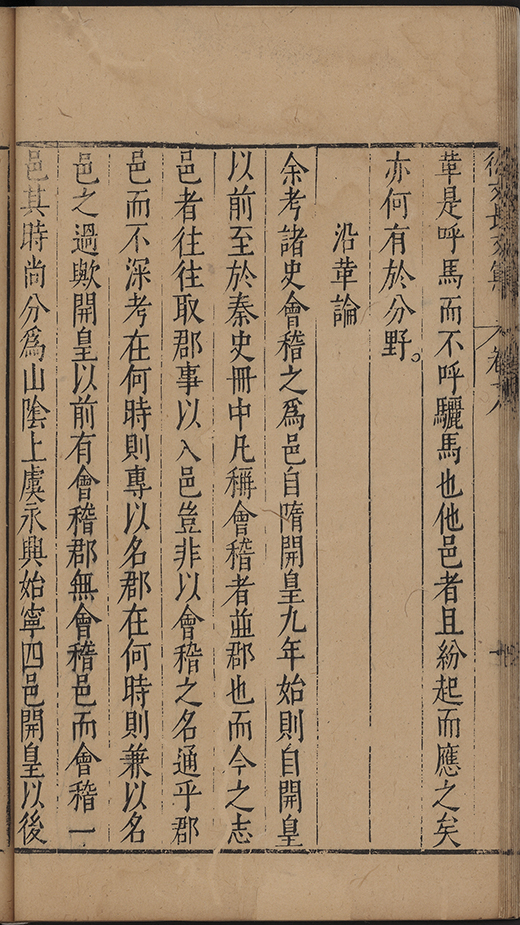 徐文長文集 卷十八
葦是呼馬而不呼驪馬也他邑者且紛起而應之矣
亦何有於分野。
沿革論
余考諸史會稽之為邑自隋開皇九年始則自開皇
以前至於秦史冊中凡稱會稽者並郡也而今之志
邑者往往取郡事以入邑豈非以會稽之名通乎郡
邑而不深考在何時則專以名郡在何時則兼以名
邑之過歟開皇以前有會稽郡無會稽邑而會稽一
邑其時尚分爲山陰上虞永興始寧四邑開皇以後